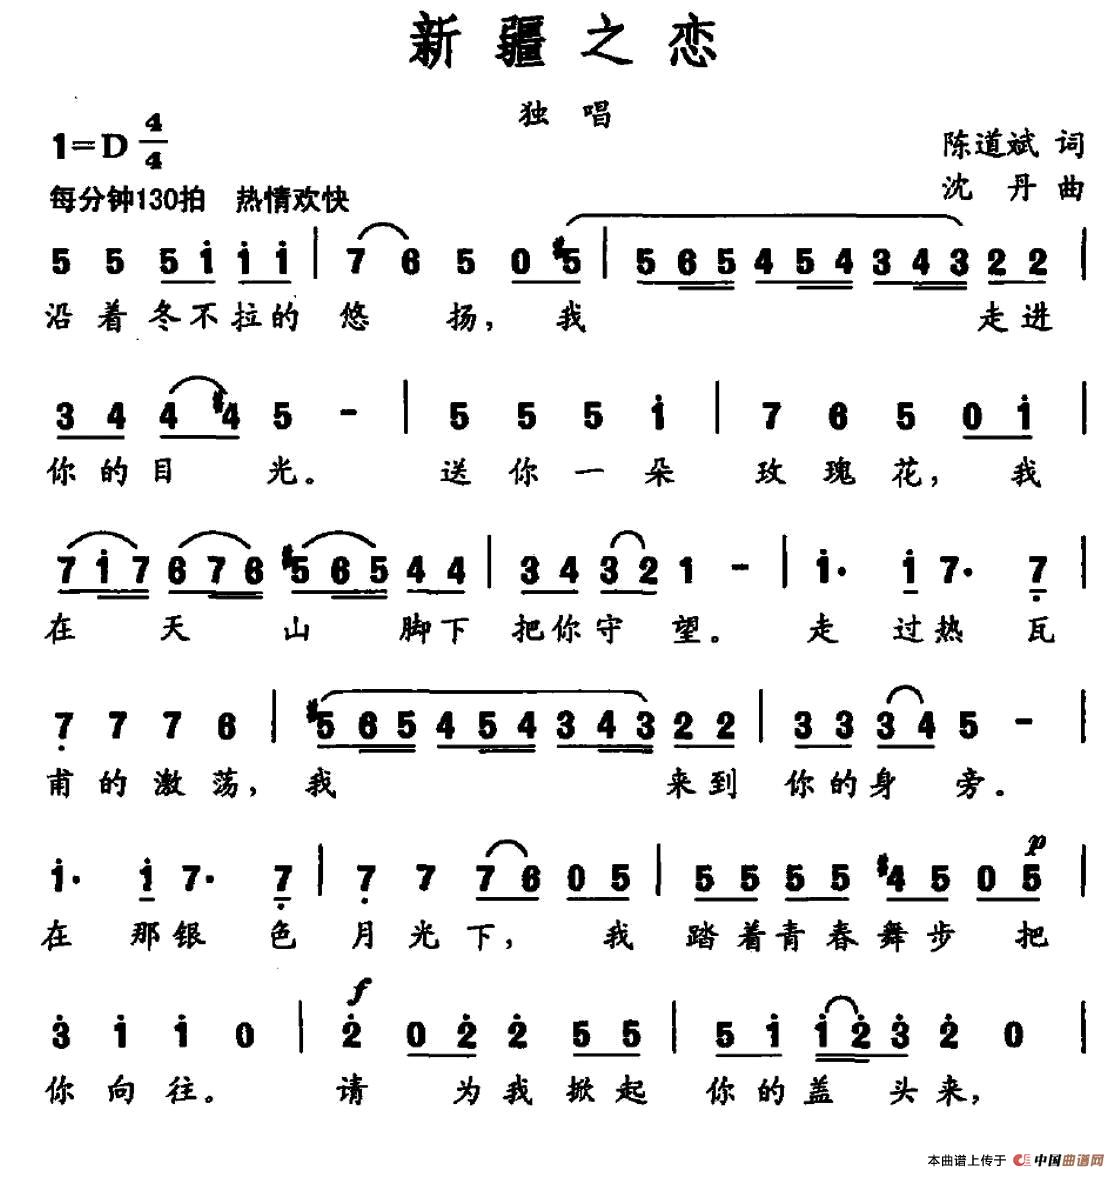 新疆之恋
独唱
1=D 4/4
陈道斌 词
每分钟130拍 热情欢快
沈丹 曲
5 5 5 i i i | 7 6 5 0 #5 | 5 6 5 4 5 4 3 4 3 2 2 |
沿着冬不拉的悠扬，我走进
3 4 4 #4 5 - | 5 5 5 i | 7 6 5 0 i |
你的目光。送你一朵玫瑰花，我
7 i 7 6 7 6 #5 6 5 4 4 | 3 4 3 2 1 - | i· i 7· 7 |
在天山脚下把你守望。走过热瓦
7 7 7 6 | #5 6 5 4 5 4 3 4 3 2 2 | 3 3 3 4 5 - |
甫的激荡，我来到你的身旁。
p
i· i 7· 7 | 7 7 7 6 0 5 | 5 5 5 5 #4 5 0 5 |
在那银色月光下，我踏着青春舞步把
f
3 i i 0 | 2 0 2 2 5 5 | 5 i i 2 3 2 0 |
你向往。请为我掀起你的盖头来，
本曲谱上传于 中国曲谱网